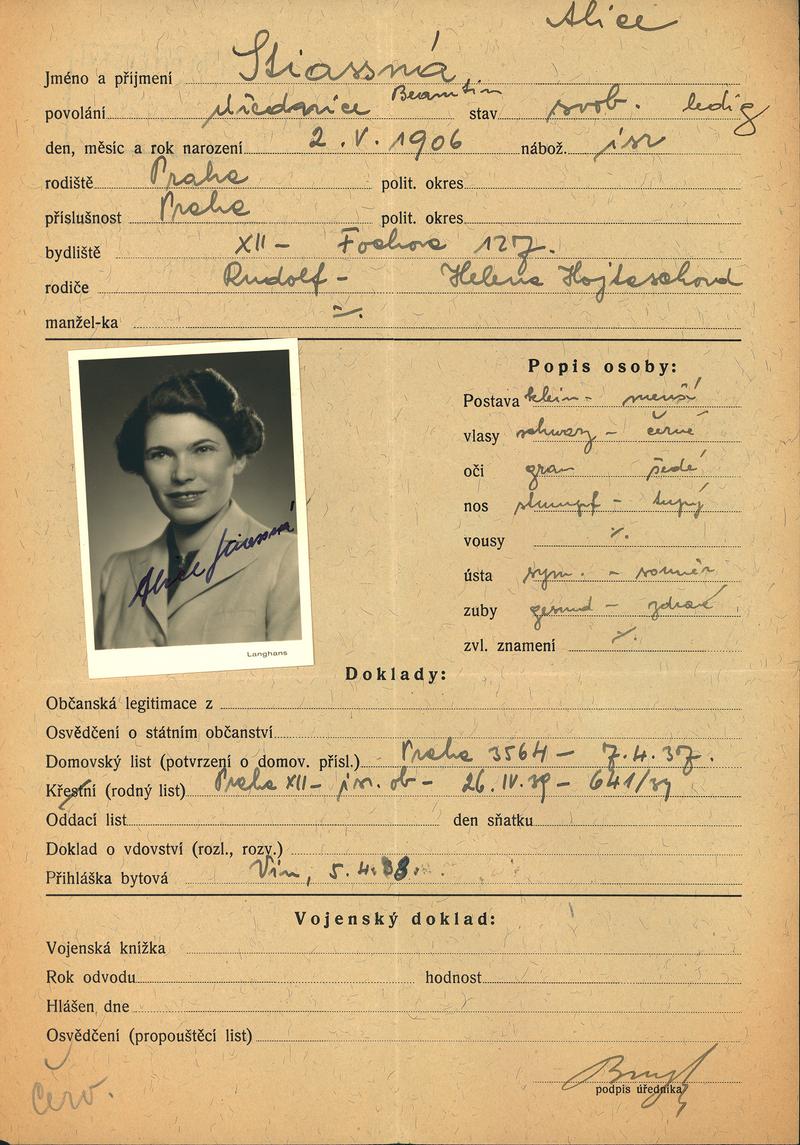 Alice
Jméno a příjmení Stiassná
povolání úřednice Beamtin stav svob. ledig
den, měsíc a rok narození 2. V. 1906 nábož. isr
rodiště Praha polit. okres
příslušnost Praha polit. okres
bydliště XII - Fochova 127.
rodiče Rudolf - Helena Hojtaschová
manžel-ka ./.
Popis osoby:
Postava klein - menší
vlasy schwarz - černé
oči grau šedé
nos stumpf - tupý
vousy ./.
ústa sym. - souměr
zuby gesund - zdravé
zvl. znamení ./.
Alice Stiassná
Langhans
Doklady:
Občanská legitimace z
Osvědčení o státním občanství
Domovský list (potvrzení o domov. přísl.) Praha 3564 - 7.4.37.
Křestní (rodný list) Praha XII - isr. ob - 26. IV. 39 - 641/39
Oddací list den sňatku
Doklad o vdovství (rozl., rozv.)
Přihláška bytová Vin, 5.4.38.
Vojenský doklad:
Vojenská knížka
Rok odvodu hodnost
Hlášen dne
Osvědčení (propouštěcí list)
podpis úředníka
červ.